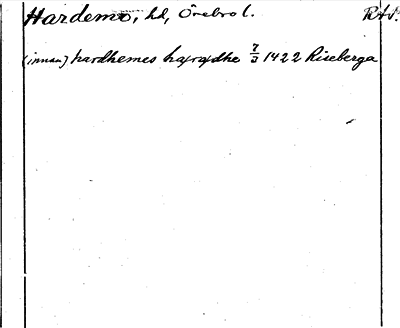 Hardemo, hd, Örebro l. RAP.
(innan) hardhemes hærædhe 7/3 1422 Riseberga